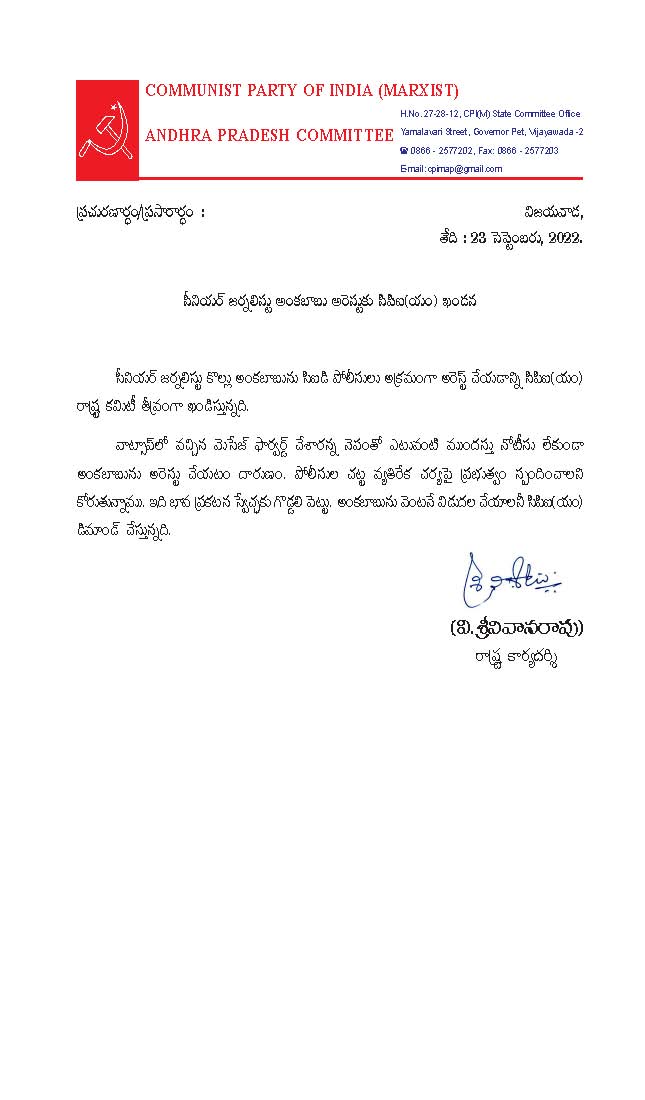 COMMUNIST PARTY OF INDIA (MARXIST)
ANDHRA PRADESH COMMITTEE
H.No. 27-28-12, CPI(M) State Committee Office
Yamalavari Street, Governor Pet, Vijayawada -2
☎ 0866 - 2577202, Fax: 0866 - 2577203
Email: cpimap@gmail.com
ప్రచురణార్థం/ప్రసారార్థం :
విజయవాడ,
తేది : 23 సెప్టెంబరు, 2022.
సీనియర్ జర్నలిస్టు అంకబాబు అరెస్టుకు సిపిఐ(యం) ఖండన
సీనియర్ జర్నలిస్టు కొల్లు అంకబాబును సిఐడి పోలీసులు అక్రమంగా అరెస్ట్ చేయడాన్ని సిపిఐ(యం)
రాష్ట్ర కమిటీ తీవ్రంగా ఖండిస్తున్నది.
వాట్సాప్‌లో వచ్చిన మెసేజ్ ఫార్వర్డ్ చేశారన్న నెపంతో ఎటువంటి ముందస్తు నోటీసు లేకుండా
అంకబాబును అరెస్టు చేయటం దారుణం. పోలీసుల చట్ట వ్యతిరేక చర్యపై ప్రభుత్వం స్పందించాలని
కోరుతున్నాము. ఇది భావ ప్రకటన స్వేచ్ఛకు గొడ్డలి పెట్టు. అంకబాబును వెంటనే విడుదల చేయాలనీ సిపిఐ(యం)
డిమాండ్ చేస్తున్నది.
(వి.శ్రీనివాసరావు)
రాష్ట్ర కార్యదర్శి